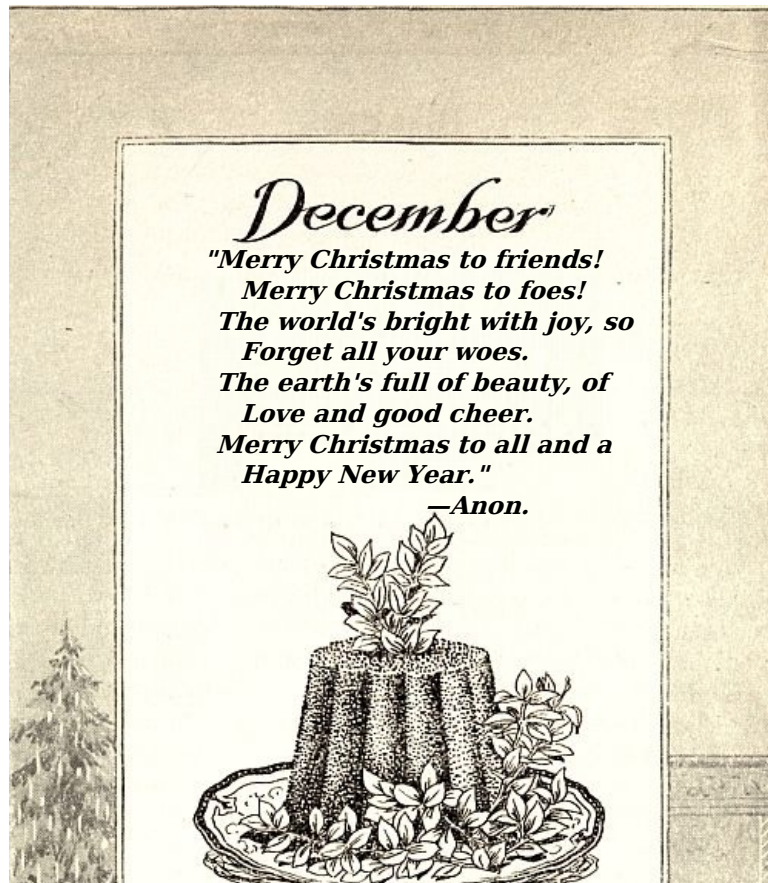 December
"Merry Christmas to friends!
Merry Christmas to foes!
The world's bright with joy, so
Forget all your woes.
The earth's full of beauty, of
Love and good cheer.
Merry Christmas to all and a
Happy New Year."
—Anon.